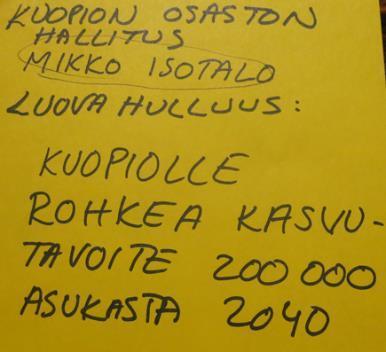 KUOPION OSASTON
HALLITUS
MIKKO ISOTALO
LUOVA HULLUUS:
KUOPIOLLE
ROHKEA KASVU-
TAVOITE 200 000
ASUKASTA 2040